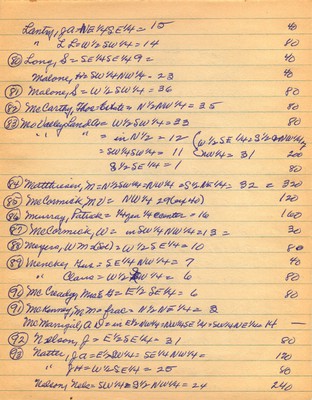 Lantry, J a = NE¼SE¼ = 15 40
" L L = W½SW¼ = 14 80
80 Long, S = SE¼SE¼ 9 = 40
Malone, H = SW¼NW¼ - 23 40
81 Malone, S = W½SW¼ = 36 80
82 McCarthy, Thos Estate = N½NW¼ = 35 80
83 McValley Land Co = W½SW¼ = 33 80
" " = in N½ = 12
= SW¼SW¼ = 11 SW¼ = 31 200
S½SE¼ = 1 80
84 Matthiesen, M = N½SW¼ = NW¼ = S½NE¼ = 32 = 320
85 McCormick, M V = NW¼ 29 (less 40) 120
86 Murray, Patrick = 16 160
87 McCormick, W = in SW¼NW¼ = 13 = 30
88 Meyers, W M = W½SE¼ = 10 80
89 Mencke, = SE¼NW¼ = 7 40
" Claus = W½SW¼ = 6 80
90 McCready, = E½SE¼ = 6 80
91 McKenney, M M = frac = N½NE¼ = 2
McNarrigil, A D = in E½NW¼ = NW¼SE¼ = SW¼NE¼ = 14 —
92 Nelson, J = E½SE¼ = 31 80
93 Natter, J a = E½SW¼ = SE¼NW¼ = 120
" J H = W½SE¼ = 25 80
Nelson, Nels = SW¼ = S½NW¼ = 24 240